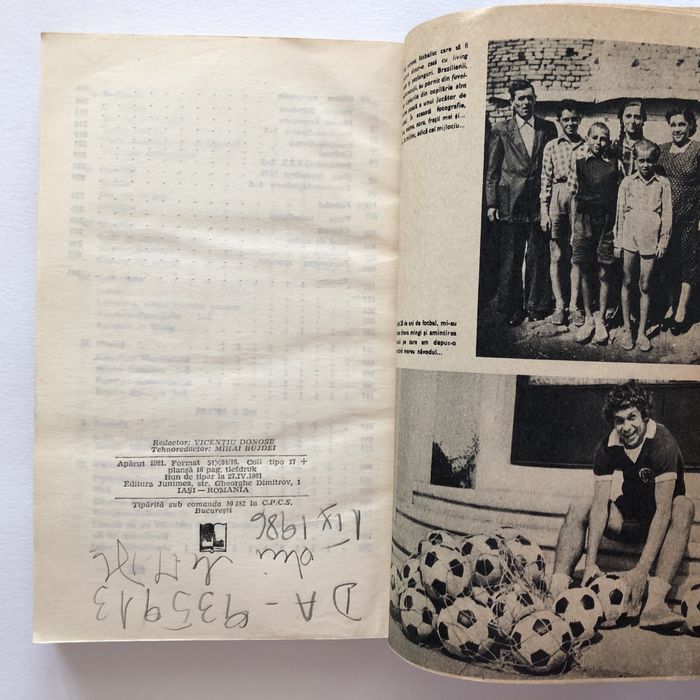 Redactor: VICENȚIU DONOSE
Tehnoredactor: MIHAI BUJDEI
Apărut 1981. Format 54×84/16. Coli tipo 17 +
planșă 16 pag. tiefdruk
Bun de tipar la 27.IV.1981
Editura Junimea, str. Gheorghe Dimitrov, 1
IAȘI — ROMANIA
Tipărită sub comanda 10 182 la C.P.C.S.
București
DA - 935913
din
IX 1986
fotbalist care să fi
dintr-o casă cu living
șezlonguri. Brazilienii,
au pornit din fave-
din copilărie sînt
a unui jucător de
În această fotografie,
sora, frații mei și...
adică cel mijlociu...
28 de ani de fotbal, mi-au
mingi și amintirea
pe care am depus-o
mereu năvodul...